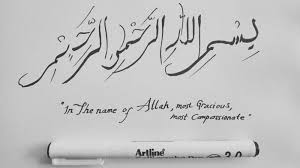 بِسْمِ اللهِ الرَّحْمٰنِ الرَّحِيْمِ
"In The name of Allah, most Gracious,
most Compassionate"
Artline
2.0